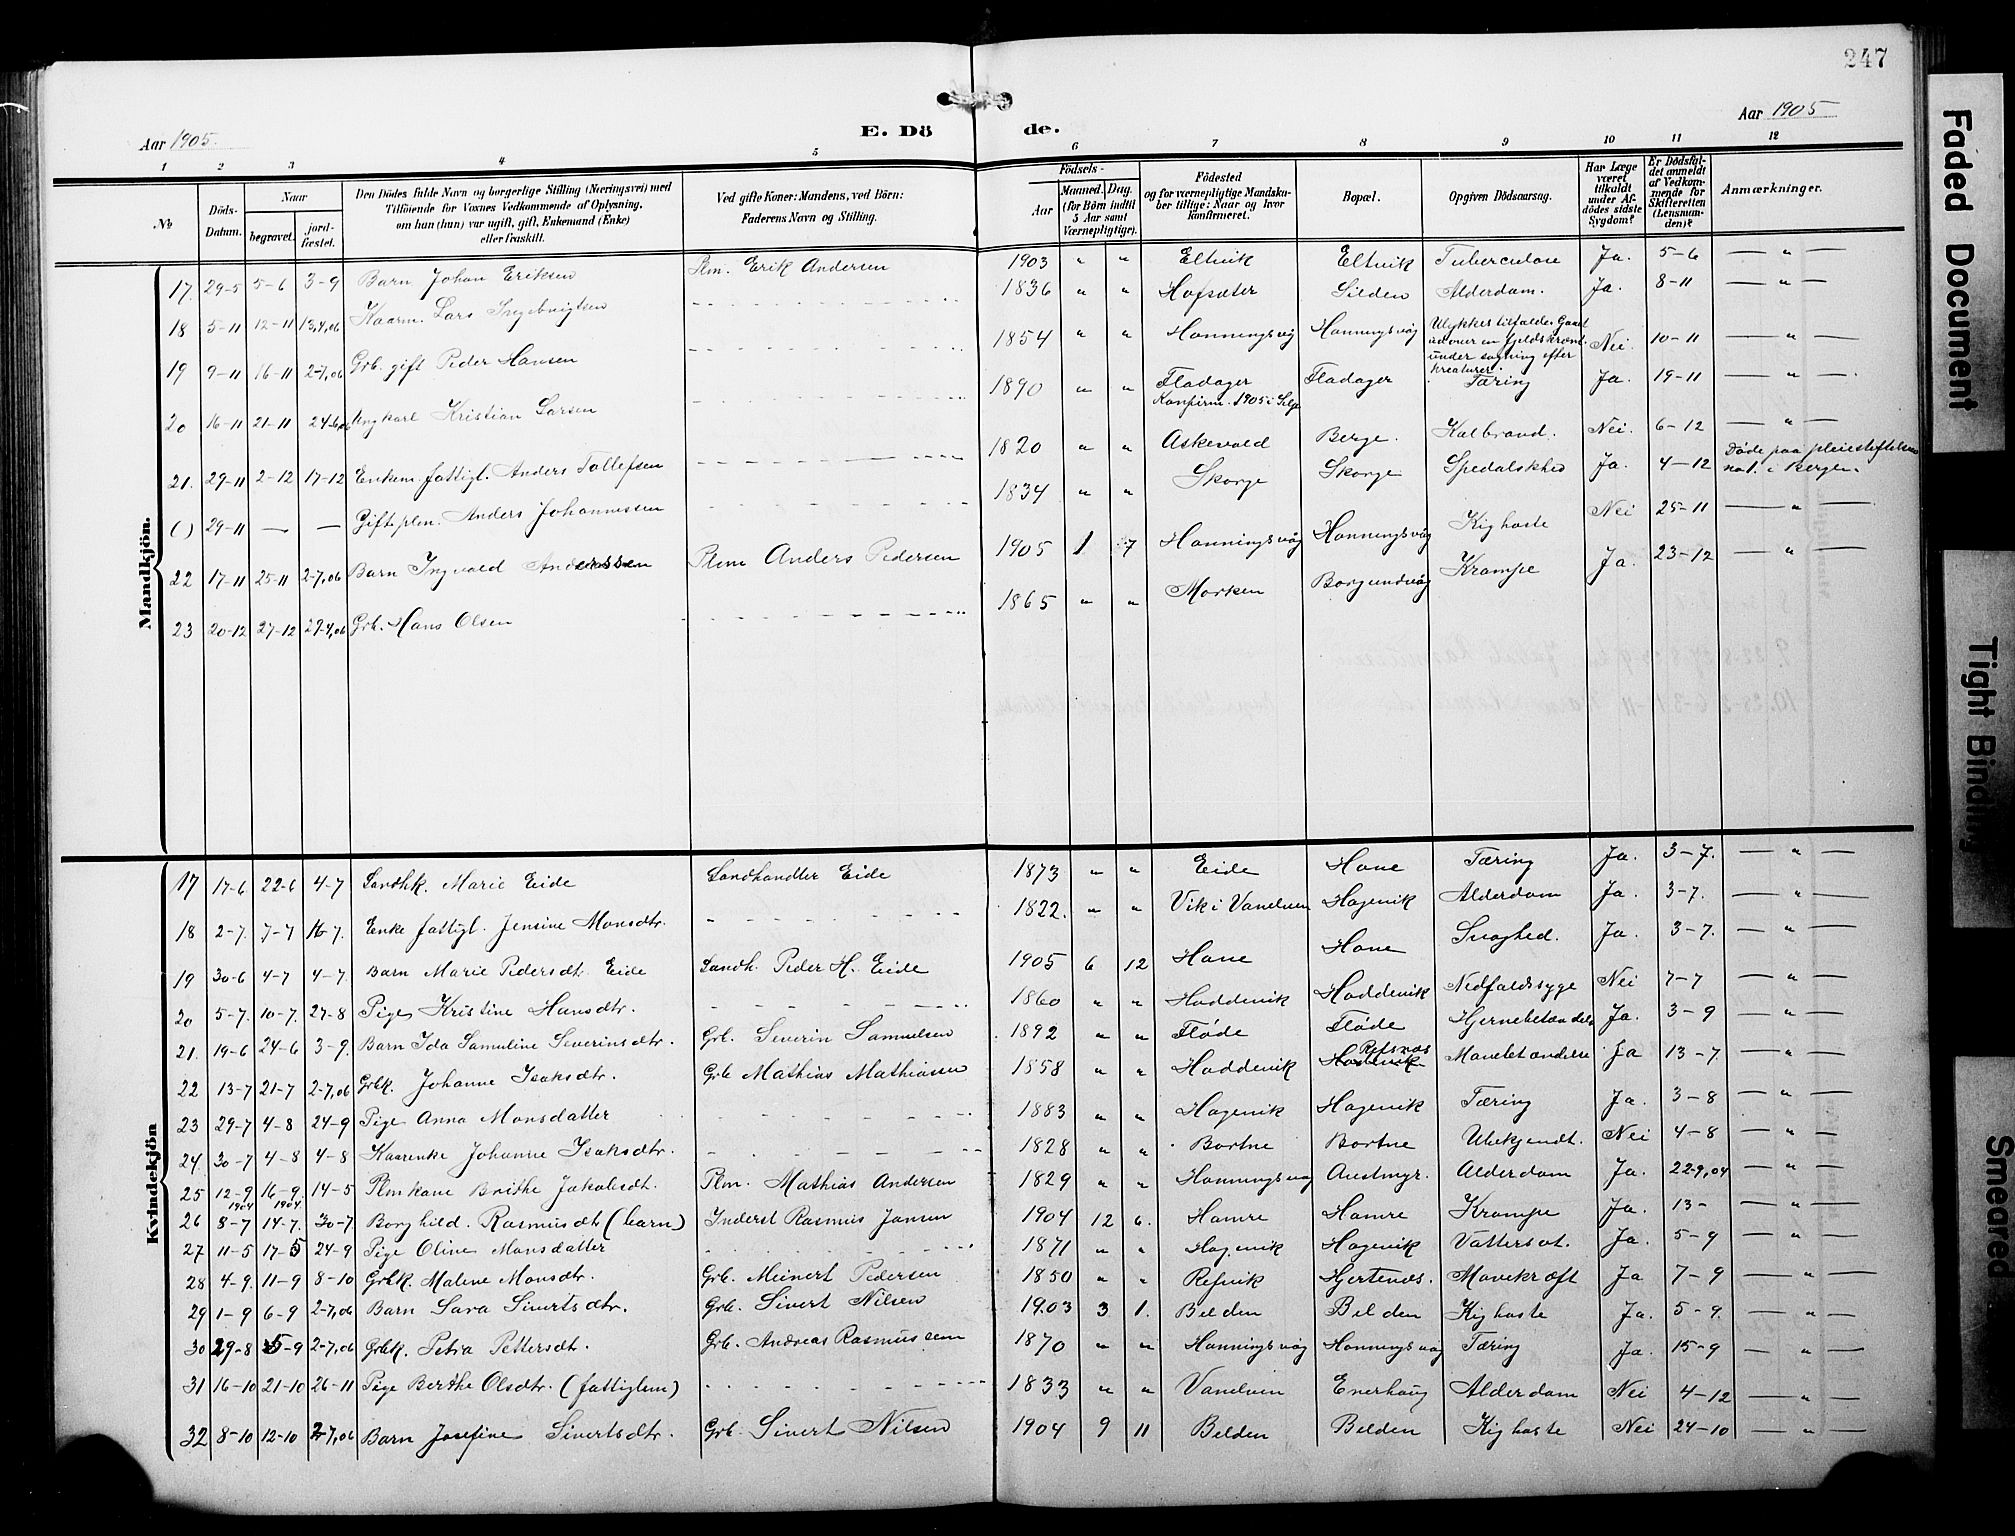 247
Aar 1905.
E. Dö
de.
Aar 1905
1 2 3 4 5 6 7 8 9 10 11 12
No
Döds-Datum.
Naar
begravet.
jord-fæstet.
Den Dödes fulde Navn og borgerlige Stilling (Næringsvei) med Tilföiende for Voxnes Vedkommende af Oplysning, om han (hun) var ugift, gift, Enkemand (Enke) eller fraskilt.
Ved gifte Koner: Mandens, ved Börn: Faderens Navn og Stilling.
Födsels-
Aar
Maaned. Dag.
(for Börn indtil 5 Aar samt Værnepligtige).
Födested og for værnepligtige Mandskaber tillige: Naar og hvor konfirmeret.
Bopæl.
Opgiven Dödsaarsag.
Har Læge været tilkaldt under Afdödes sidste Sygdom?
Er Dödsfaldet anmeldt af Vedkommende for Skifteretten (Lensmanden)?
Anmærkninger.
Mandkjön.
17. 29-5 5-6 3-9 Barn Johan Eriksen Plm. Erik Andersen 1903 " " Eltvik Eltvik Tuberculose Ja. 5-6 — " —
18 5-11 12-11 13,4,06 Kaarm. Lars Ingebrigtsen 1836 " " Hofsæter Silden Alderdom. Ja. 8-11 — " —
19 9-11 16-11 2-7,06 Grb. gift Peder Hansen 1854 " " Honningsvåg Honningsvåg Ulykkestilfælde. Gaaet udover en fjeldskrænt under søgning efter kreaturer. Nei. 10-11 — " —
20 16-11 21-11 24-6,06 Ungkarl Kristian Larsen 1890 " " Fladager Konfirm. 1905 i Selje Fladager Tæring Ja. 19-11 — " —
21. 29-11 2-12 17-12 Enkem. fattigl. Anders Tollefsen 1820 " " Askevold Berge. Kolbrand. Nei. 6-12 — " —
() 29-11 — — Gift plm. Anders Johannessen 1834 " " Skorge Skorge Spedalskhed Ja. 4-12 Døde paa pleiestiftelsen no 1. i Bergen.
22 17-11 25-11 2-7,06 Barn Ingvald Anderssen Plm Anders Pedersen 1905 1 7 Honningsvåg Honningsvåg Kighoste Nei 25-11 — " —
23 20-12 27-12 29-4,06 Grb. Hans Olsen 1865 " " Morken Borgundvåg Krampe Ja. 23-12 — " —
Kvindekjön
17 17-6 22-6 4-7 Landhk. Marie Eide Landhandler Eide 1873 " " Eide Hove Tæring Ja. 3-7. — " —
18 2-7. 7-7 16-7. Enke fattigl. Jensine Monsdtr. 1822. " " Vik i Vanelven Hagevik Alderdom Ja. 3-7. — " —
19 30-6 4-7 4-7. Barn Marie Pedersdtr. Eide Landh. Peder H. Eide 1905 6 12 Hove Hove Svaghed. Ja. 3-7. — " —
20 5-7. 10-7. 27-8 Pige Kristine Hansdtr. 1860 " " Hoddevik Hoddevik Nedfaldssyge Nei 7-7 — " —
21. 19-6 24-6 3-9. Barn Ida Samuline Severinsdtr. Grb. Severin Samuelsen 1892 " " Fløde Fløde Hjernebetændelse Ja. 3-9 — " —
22 13-7 21-7 2-7,06 Grbk. Johanne Isaksdtr. Grb Mathias Mathiasen 1858 " " Hoddevik Refsnæs Hoddevik Mavebetændelse Ja 13-7. — " —
23 29-7 4-8 24-9 Pige Anna Monsdatter 1883 " " Hagevik Hagevik Tæring Ja. 3-8 — " —
24. 30-7 4-8 4-8 Kaarenke Johanne Isaksdtr. 1828 " " Bortne Bortne Ubekjendt. Nei 4-8 — " —
25 12-9 1904 16-9. 1904 14-5 Plmkone Brithe Jakobsdt. Plm. Mathias Andersen 1829 " " Honningsvåg Austmyr. Alderdom Ja. 22-9,04 — " —
26 8-7 14-7. 30-7 Borghild. Rasmusdt (barn) Inderst Rasmus Jansen 1904 12 6. Hamre Hamre Krampe Ja. 13- — " —
27 11-5 17-5 24-9 Pige Oline Monsdatter 1871 " " Hagevik Hagevik Vattersot. Ja. 5-9 — " —
28 4-9. 11-9 8-10 Grbk. Malene Monsdtr. Grb. Meinert Pedersen 1850 " " Refvik Hjertenæs. Mavekræft Ja 7-9 — " —
29 1-9 6-9 2-7,06 Barn Sara Sivertsdtr. Grb. Sivert Nilsen 1903 3 1. Belden Belden Kighoste Ja. 5-9. — " —
30 29-8 5-9 2-7,06 Grbk. Petra Pettersdt. Grb. Andreas Rasmussen 1870 " " Honningsvåg Honningsvåg Tæring Ja. 15-9 — " —
31 16-10 21-10 26-11 Pige Berthe Olsdtr. (fattiglem) 1833 " " Vanelven Enerhaug Alderdom Nei 4-12 — " —
32 8-10 12-10 2-7,06 Barn Josefine Sivertsdtr. Grb. Sivert Nilsen 1904 9 11 Belden Belden Kighoste Nei 24-10 — " —
Faded Document
Tight Binding
Smeared